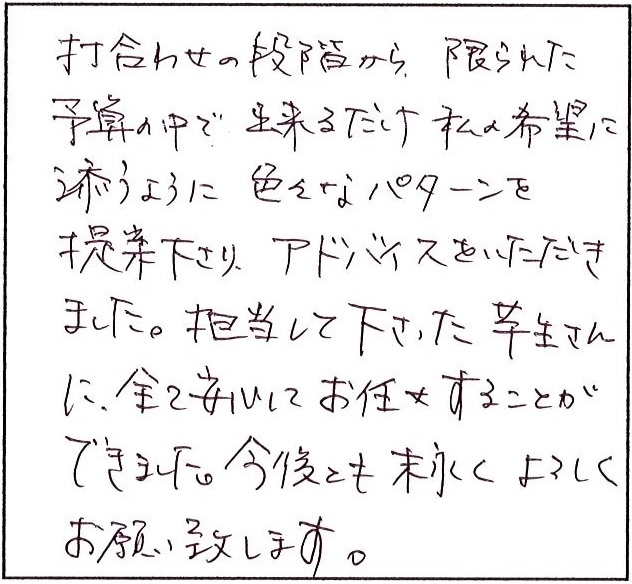 打合わせの段階から、限られた
予算の中で出来るだけ私の希望に
添うように色々なパターンを
提案下さり、アドバイスをいただき
ました。担当して下さった芊生さん
に、全て安心してお任せすることが
できました。今後とも末永くよろしく
お願い致します。